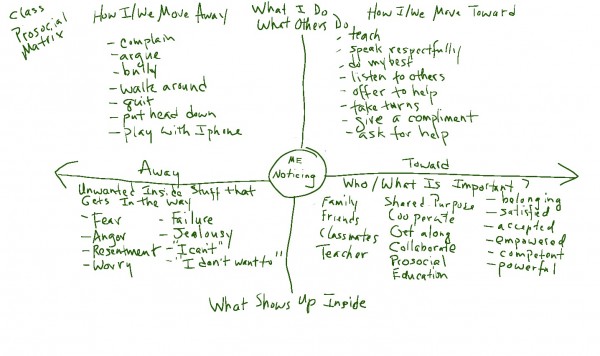 Class
Prosocial
Matrix
How I/We Move Away
- complain
- argue
- bully
- walk around
- quit
- put head down
- play with Iphone
What I Do
What Others Do
How I/We Move Toward
- teach
- speak respectfully
- do my best
- listen to others
- offer to help
- take turns
- give a compliment
- ask for help
Away
ME
Noticing
Toward
Unwanted Inside Stuff that
Gets In the way
- Fear
- Anger
- Resentment
- Worry
- Failure
- Jealousy
- "I can't"
- "I don't want to"
Who/What Is Important?
Family
Friends
Classmates
Teacher
Shared Purpose
Cooperate
Get along
Collaborate
Prosocial
Education
- belonging
- satisfied
- accepted
- empowered
- competent
- powerful
What Shows Up Inside